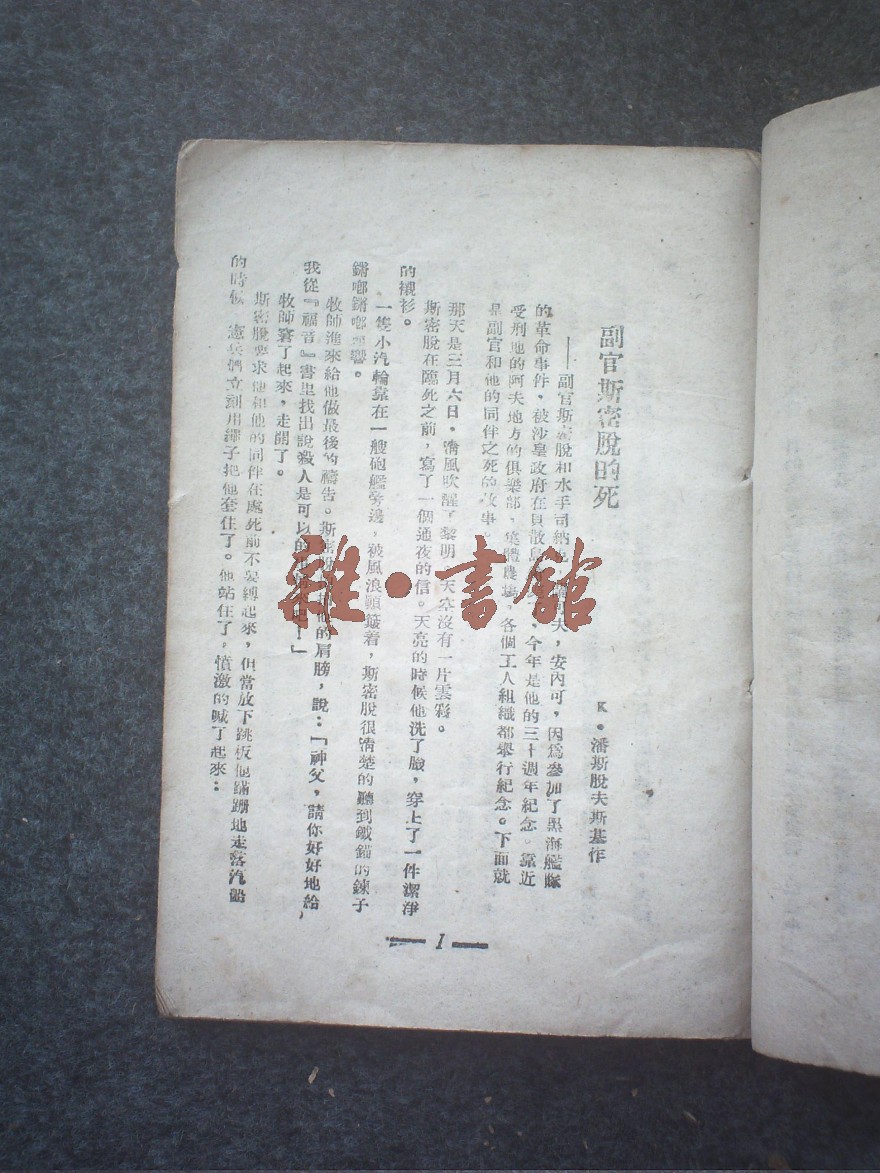 副官斯密脫的死
K·潘斯脫夫斯基作
——副官斯密脫和水手司納 夫，安内可，因爲參加了黑海艦隊
的革命事件，被沙皇政府在貝散島 ，今年是他的三十週年紀念。靠近
受刑地的阿夫地方的俱樂部、集體農場、各個工人組織都舉行紀念。下面就
是副官和他的同伴之死的故事
那天是三月六日，淸風吹醒了黎明，天空沒有一片雲彩。
斯密脫在臨死之前，寫了一個通夜的信。天亮的時候他洗了臉，穿上了一件潔淨
的襯衫。
一隻小汽輪靠在一艘砲艦旁邊，被風浪顚簸着，斯密脫很淸楚的聽到鐵錨的鍊子
鏘啷鏘啷 響。
牧師進來給他做最後的禱告。斯密脫 的肩膀，說：「神父，請你好好地給
我從『福音』書里找出說殺人是可以的 ！」
牧師 了起來，走開了。
斯密脫要求他和他的同伴在處死前不要縛起來，但當放下跳板他蹣跚地走落汽船
的時候 憲兵們立刻用繩子把他套住了。他站住了，憤激的喊了起來：
— 1 —
雜·書館